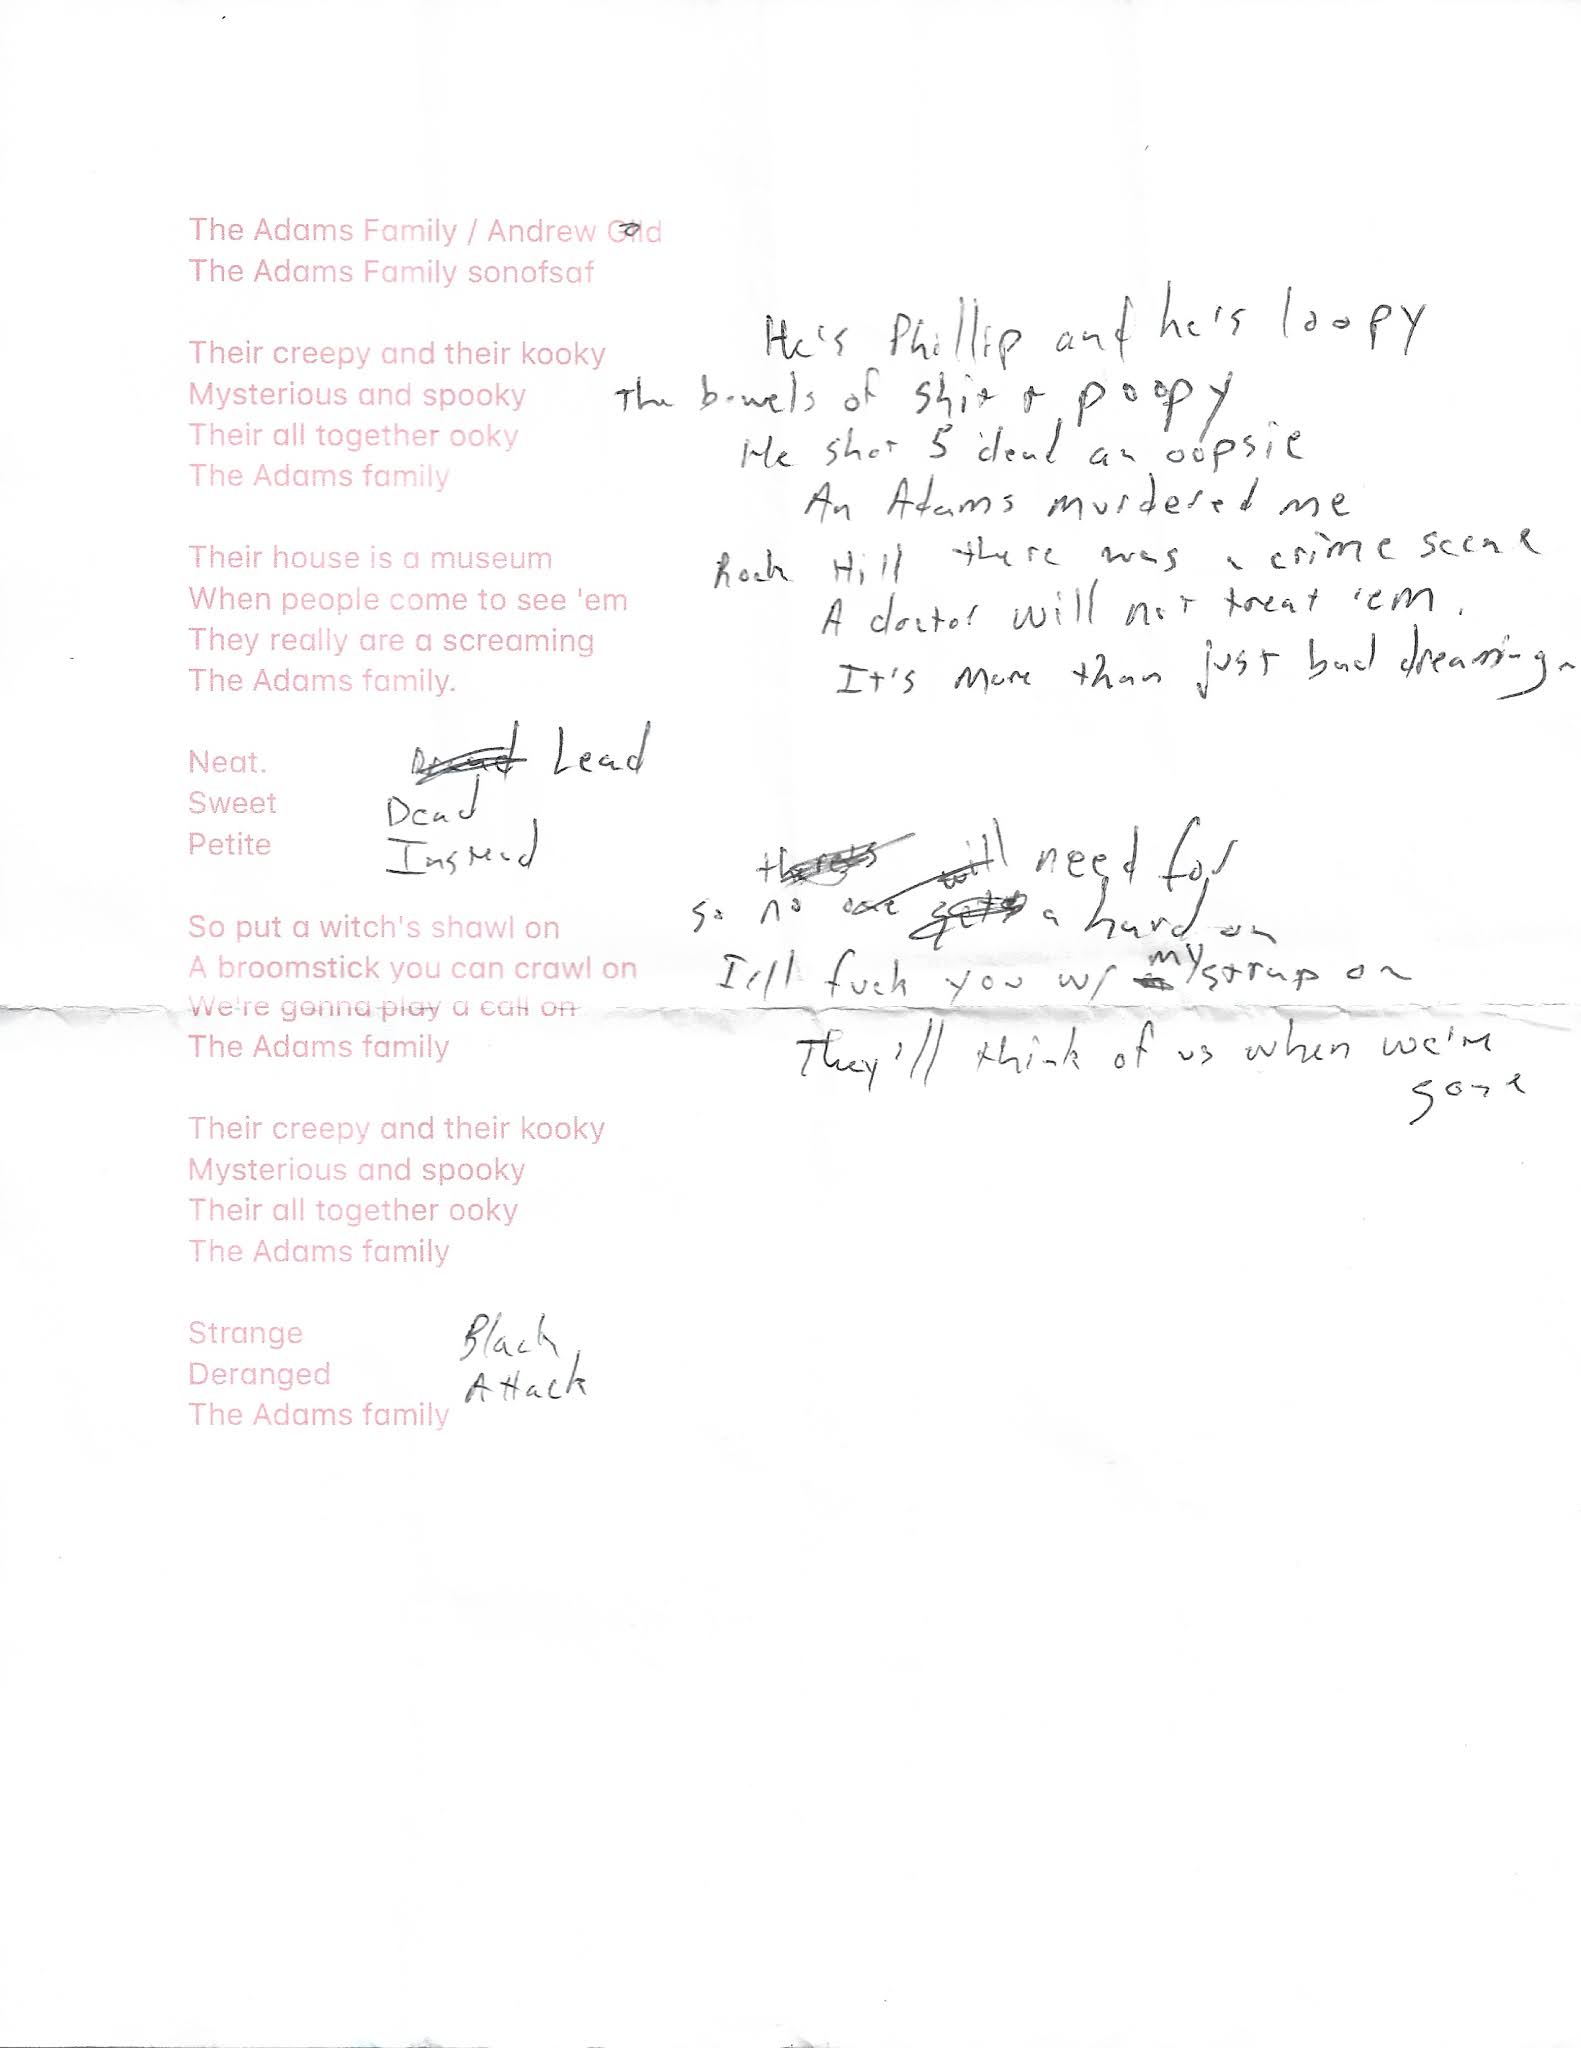 The Adams Family / Andrew Gold
The Adams Family sonofsaf
Their creepy and their kooky
Mysterious and spooky
Their all together ooky
The Adams family
Their house is a museum
When people come to see 'em
They really are a screaming
The Adams family.
Neat.
Sweet
Petite
So put a witch's shawl on
A broomstick you can crawl on
We're gonna play a call on
The Adams family
Their creepy and their kooky
Mysterious and spooky
Their all together ooky
The Adams family
Strange
Deranged
The Adams family
He's Phillip and he's loopy
The bowels of shit + poopy
He shot 5 dead an oopsie
An Adams murdered me
Rock Hill there was a crime scene
A doctor will not treat 'em.
It's more than just bad dreaming
Lead
Dead
Instead
there's will need for
so no one gets a hard on
I'll fuck you w/ my strap on
They'll think of us when we're
gone
Black
Attack